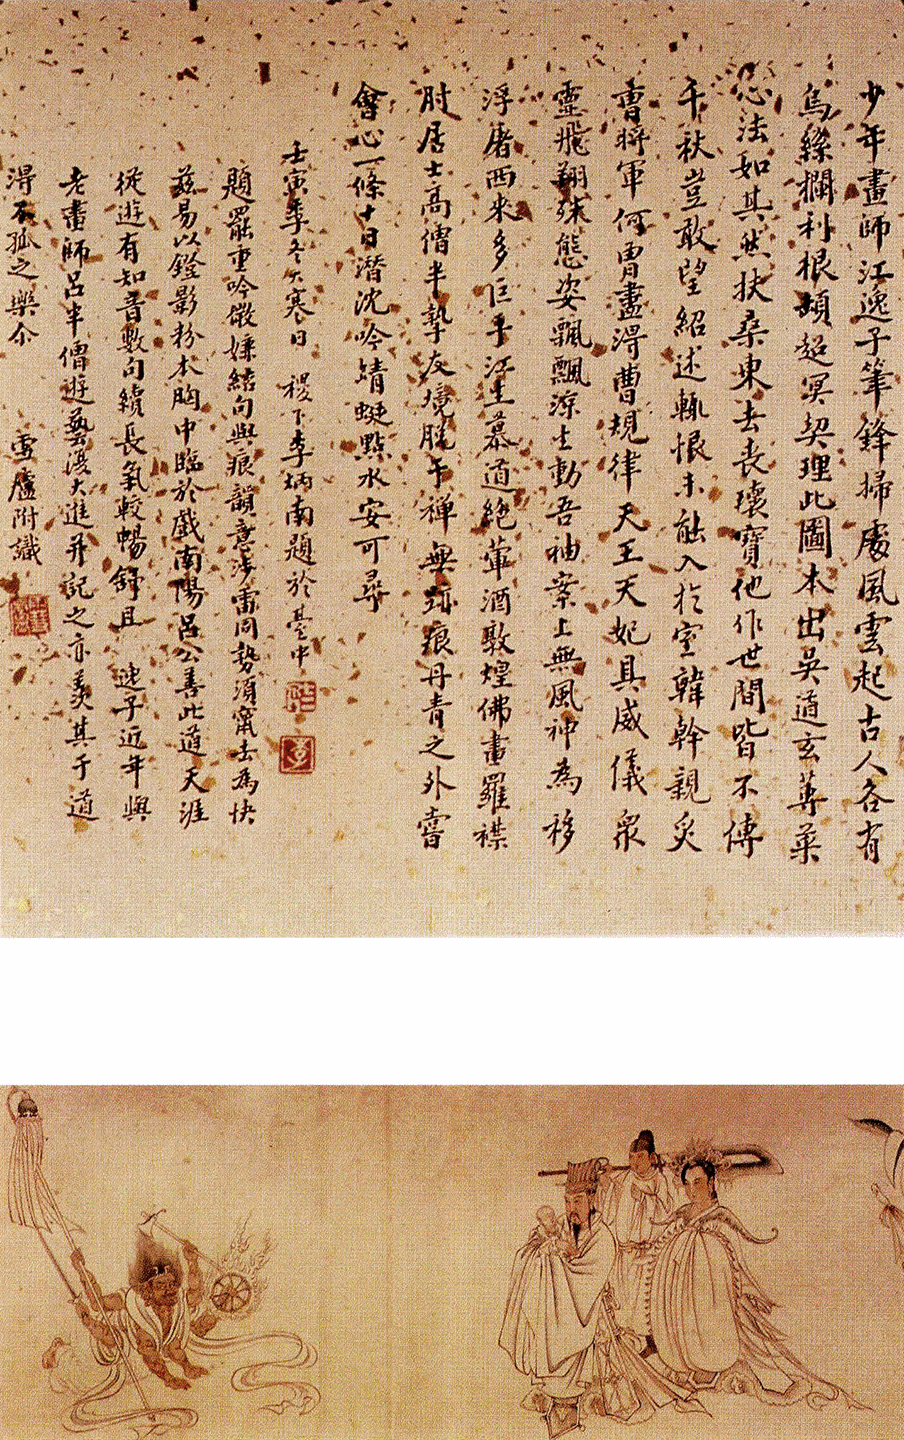 少年畫師江逸子筆鋒掃處風雲起古人各有
烏絲欄利根頓超冥契理此圖本出吳道玄蓴菜
心法如其然扶桑東去喪瓌寶他作世間皆不傳
千秋豈敢望紹述輒恨未能入於室韓幹親炙
曹將軍何曾盡得曹規律天王天妃具威儀眾
靈飛翔殊態姿飄飄涼生動吾袖案上無風神為移
浮屠西來多巨手江生慕道絕葷酒敦煌佛畫羅襟
肘居士高僧半摯友境脫乎禪無跡痕丹青之外嘗
會心一條十日潛沈吟蜻蜓點水安可尋
壬寅季冬大寒日 稷下李炳南題於臺中
題罷重吟微嫌結句與痕韻意涉雷同勢須甯去為快
茲易以鐙影粉本胸中臨於戲南陽呂公善此道天涯
從遊有知音數句續長氣較暢舒且 逸子近年與
老畫師呂半僧遊藝復大進并記之亦羨其于道
得不孤之樂尒 雪廬附識